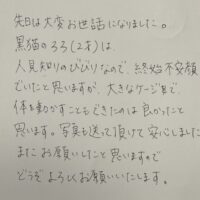 先日は大変お世話になりました。
黒猫のろろ(2才)は、
人見知りのびびりなので、終始不安顔
でいたと思いますが、大きなケージ まで、
体を動かすこともできたのは良かったと
思います。写真も送って頂けて安心しました
またお願いしたと思いますので
どうぞよろしくお願いいたします。